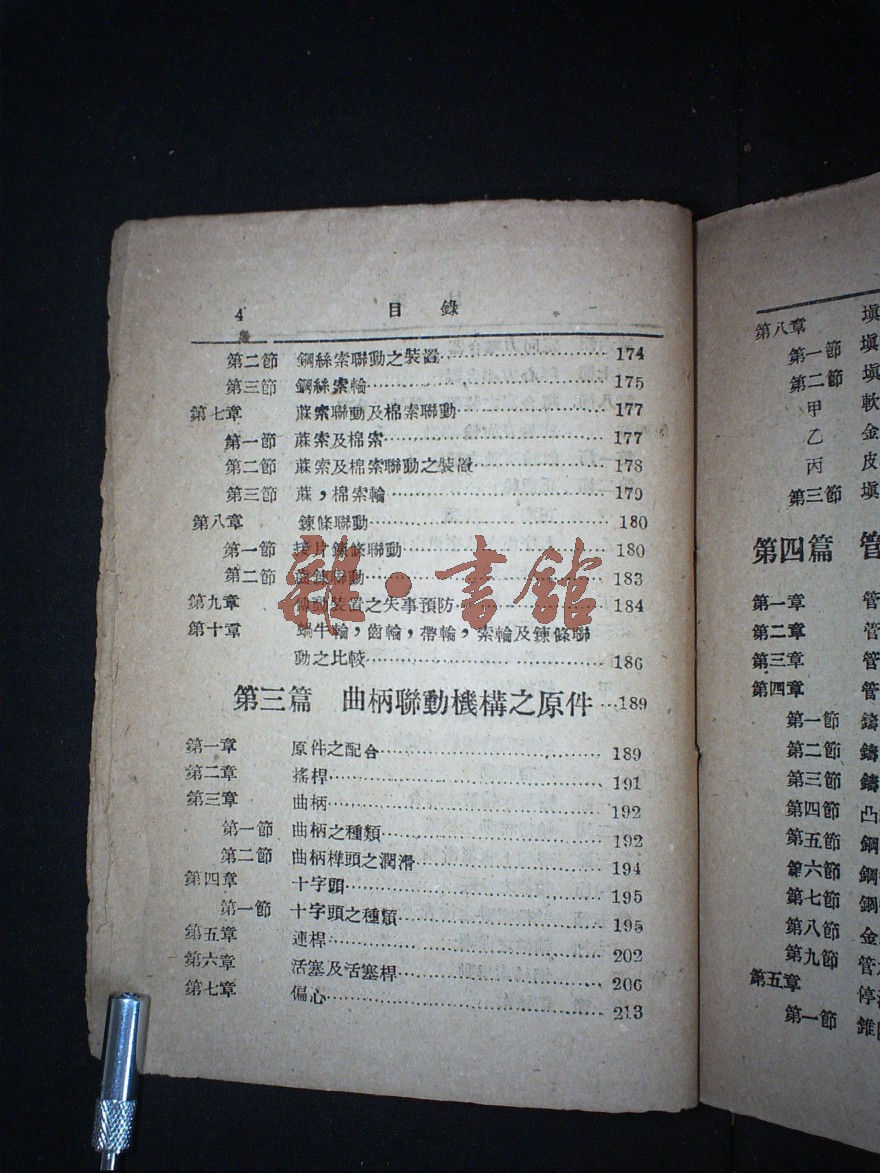 4 目錄
第二節 鋼絲索聯動之裝置 174
第三節 鋼絲索輪 175
第七章 蔴索聯動及棉索聯動 177
第一節 蔴索及棉索 177
第二節 蔴索及棉索聯動之裝置 178
第三節 蔴，棉索輪 179
第八章 鍊條聯動 180
第一節 接片鍊條聯動 180
第二節 鍊聯動 183
第九章 傳動裝置之失事預防 184
第十章 蝸牛輪，齒輪，帶輪，索輪及鍊條聯
動之比較 186
第三篇 曲柄聯動機構之原件 189
第一章 原件之配合 189
第二章 搖桿 191
第三章 曲柄 192
第一節 曲柄之種類 192
第二節 曲柄榫頭之潤滑 194
第四章 十字頭 195
第一節 十字頭之種類 195
第五章 連桿 202
第六章 活塞及活塞桿 206
第七章 偏心 213
雜·書館
第八章 填
第一節 填
第二節 填
甲 軟
乙 金
丙 皮
第三節 填
第四篇 管
第一章 管
第二章 管
第三章 管
第四章 管
第一節 鑄
第二節 鑄
第三節 鑄
第四節 凸
第五節 鋼
第六節 鋼
第七節 鋼
第八節 金
第九節 管
第五章 停
第一節 錐